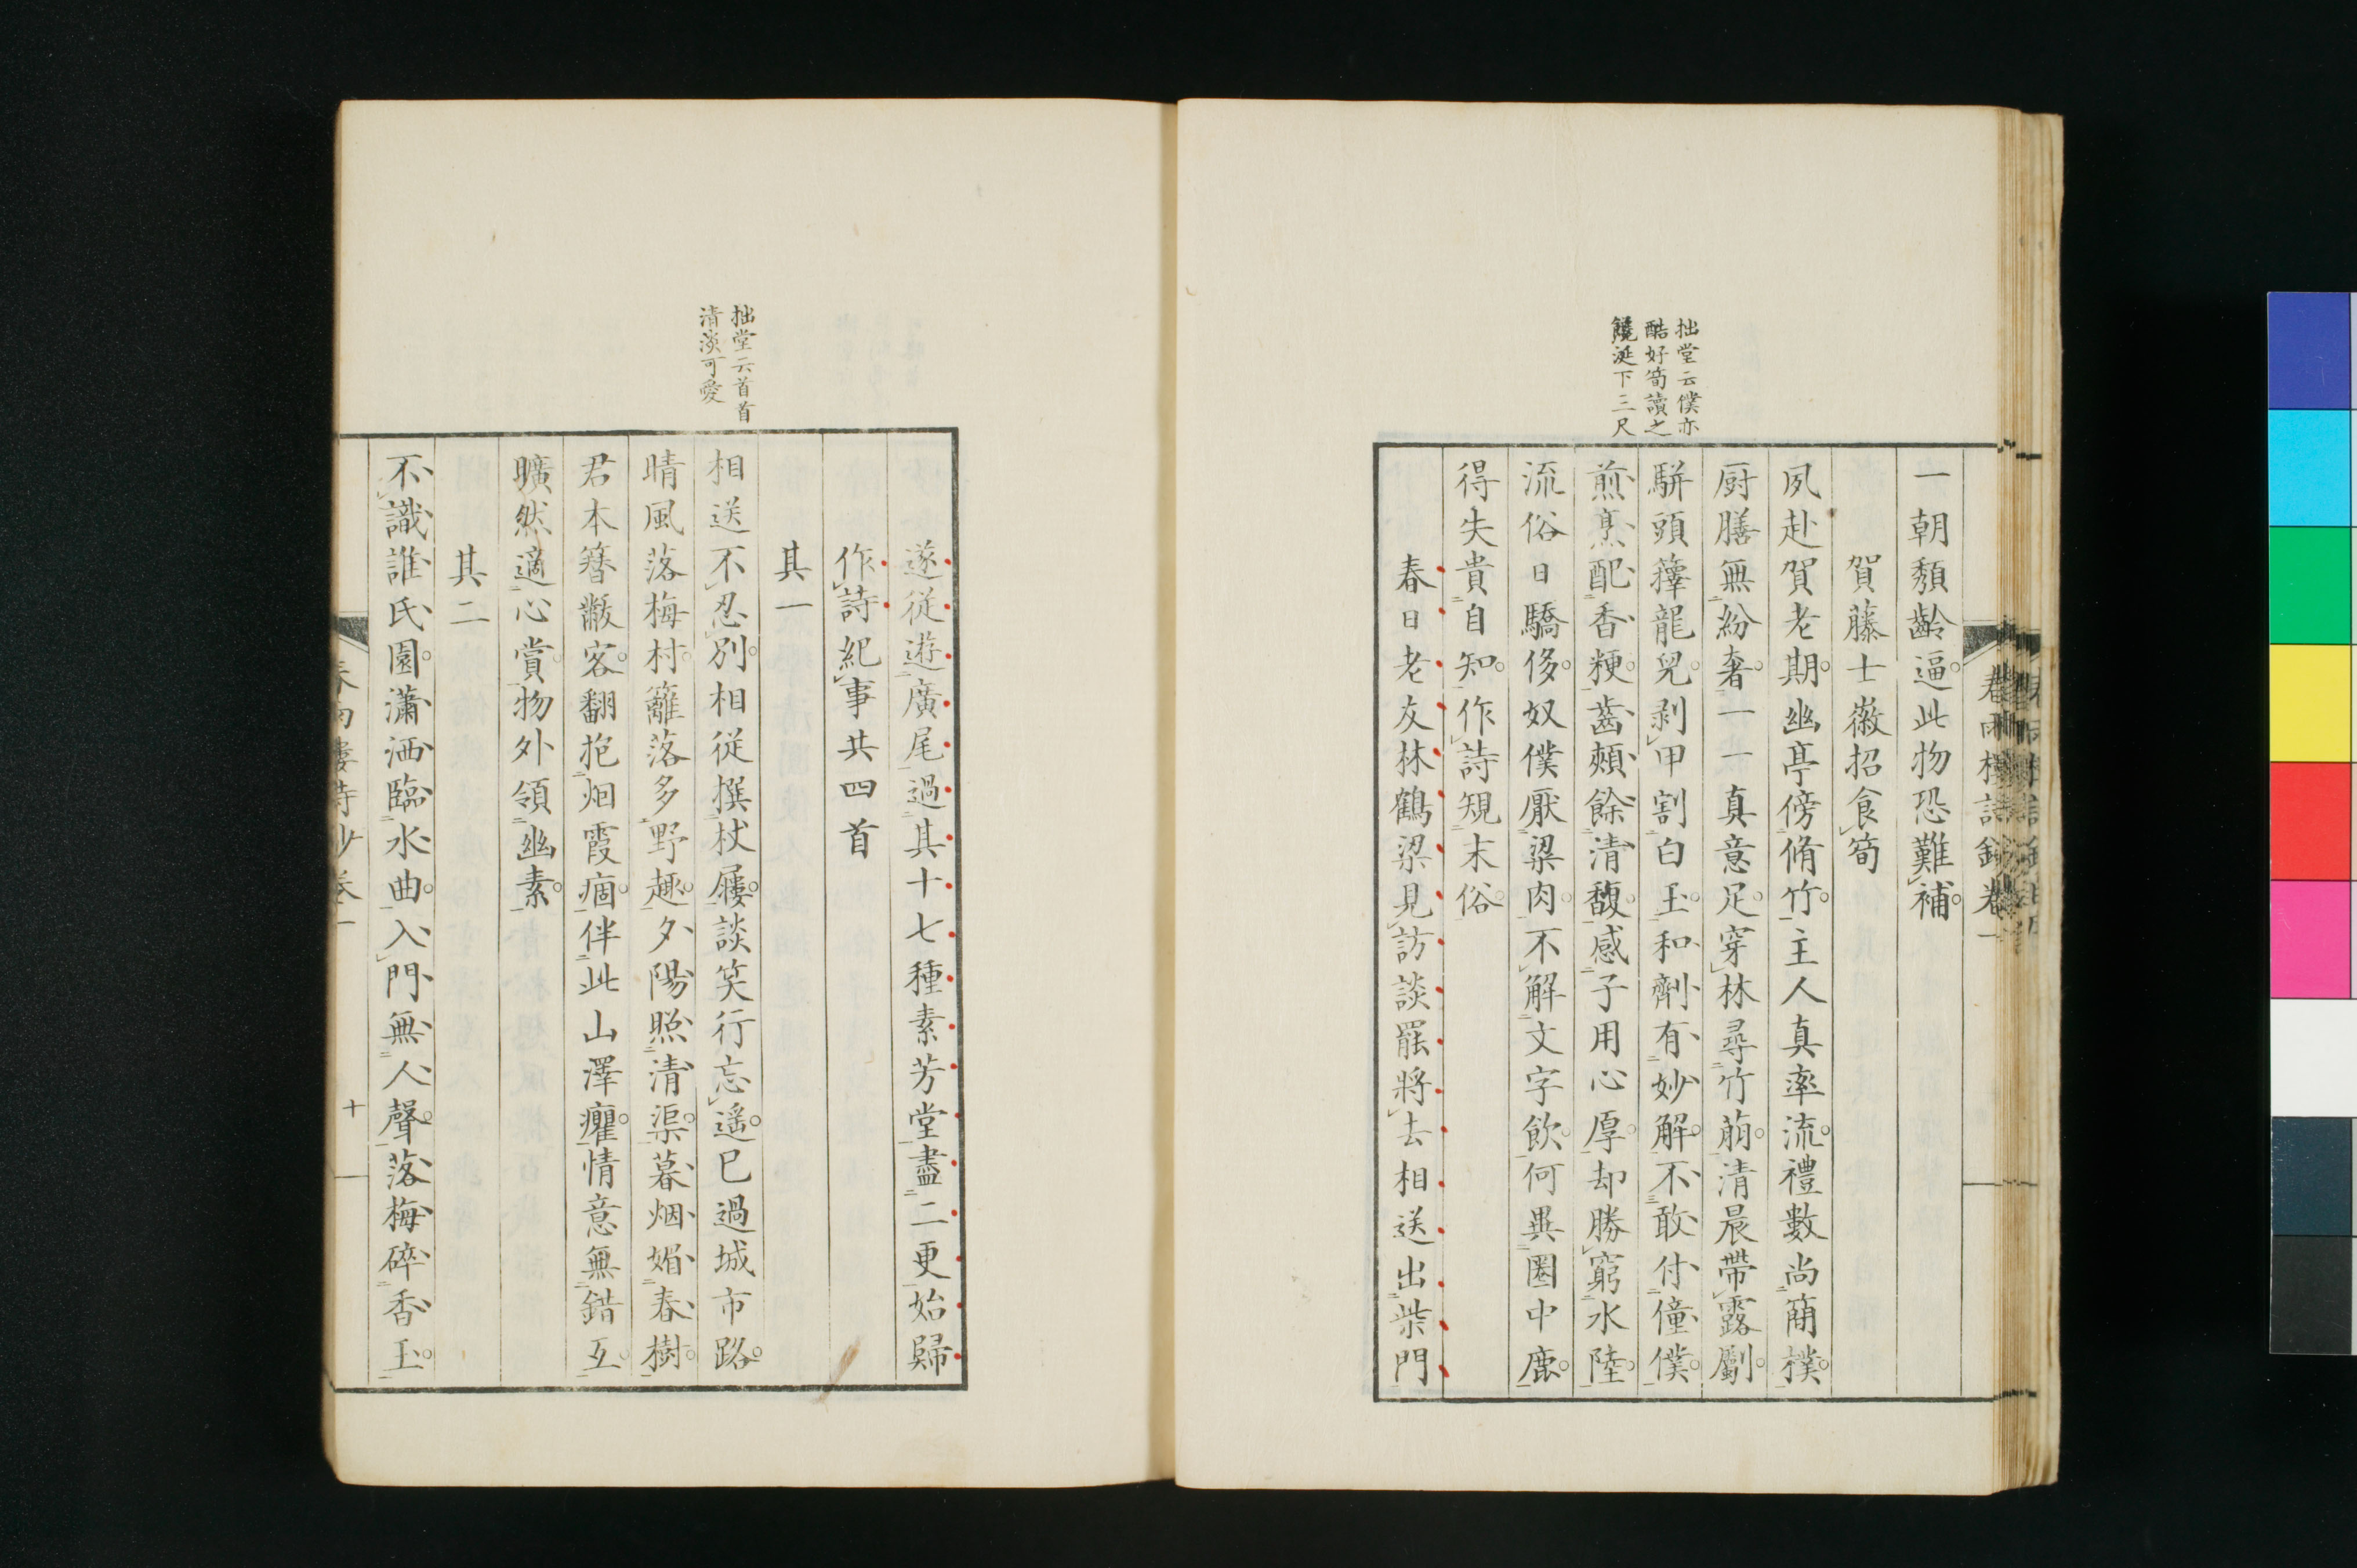 一朝頽齡逼此物恐難補
賀藤士徽招食筍
夙赴賀老期幽亭傍脩竹主人真率流禮數尚簡樸
厨膳無紛奢一一真意足穿林尋竹萠清晨帶露劚
駢頭籜龍兒剥甲割白玉和劑有妙解不敢付僮僕
煎烹配香粳齒頰餘清馥感子用心厚却勝窮水陸
流俗日驕侈奴僕厭粱肉不解文字飲何異圈中鹿
得失貴自知作詩規末俗
春日老友林鶴梁見訪談罷將去相送出柴門
拙堂云僕亦
酷好筍讀之
饞涎下三尺
春雨樓詩鈔卷一
遂従遊廣尾過其十七種素芳堂盡二更始歸
作詩紀事共四首
其一
相送不忍別相従撰杖屨談笑行忘遥已過城市路
晴風落梅村籬落多野趣夕陽照清渠暮烟媚春樹
君本簪黻客翻抱烟霞痼伴此山澤癯情意無錯互
曠然適心賞物外領幽素
其二
不識誰氏園瀟洒臨水曲入門無人聲落梅碎香玉
拙堂云首首
清淡可愛
春雨樓詩鈔卷一
十